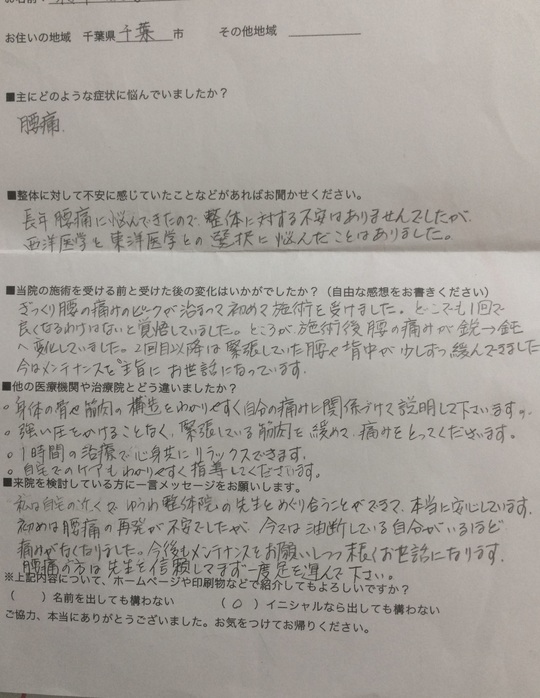 お住いの地域 千葉県 千葉 市 その他地域
■主にどのような症状に悩んでいましたか？
腰痛.
■整体に対して不安に感じていたことなどがあればお聞かせください。
長年 腰痛に悩んできたので、整体に対する不安はありませんでしたが、
西洋医学と東洋医学との選択に悩んだことはありました。
■当院の施術を受ける前と受けた後の変化はいかがでしたか？（自由な感想をお書きください）
ぎっくり腰の痛みのピークが治まって初めて施術を受けました。どこでも1回で
良くなるわけはないと覚悟していました。ところが施術後腰の痛みが鋭→鈍
へ変化していました。2回目以降は緊張していた腰や背中が少しずつ緩んできました
今はメンテナンスを主旨にお世話になっています.
■他の医療機関や治療院とどう違いましたか？
○身体の骨や筋肉の構造をわかりやすく自分の痛みに関係づけて説明して下さいます。
○強い圧をかけることなく、緊張している筋肉を緩めて、痛みをとってくださいます。
○1時間の治療で心身共にリラックスできます.
○自宅でのケアもわかりやすく指導してくださいます.
■来院を検討している方に一言メッセージをお願いします。
私は自宅の近くで ゆうわ整体院の先生とめぐり合うことができて、本当に安心しています.
初めは腰痛の再発が不安でしたが、今では油断している自分がいるほど
痛みがなくなりました。今後もメンテナンスをお願いしつつ末長くお世話になります.
腰痛の方は先生を信頼してまず一度足を運んで下さい。
※上記内容について、ホームページや印刷物などで紹介してもよろしいですか？
（ ）名前を出しても構わない （○）イニシャルなら出しても構わない
ご協力、本当にありがとうございました。お気をつけてお帰りください。